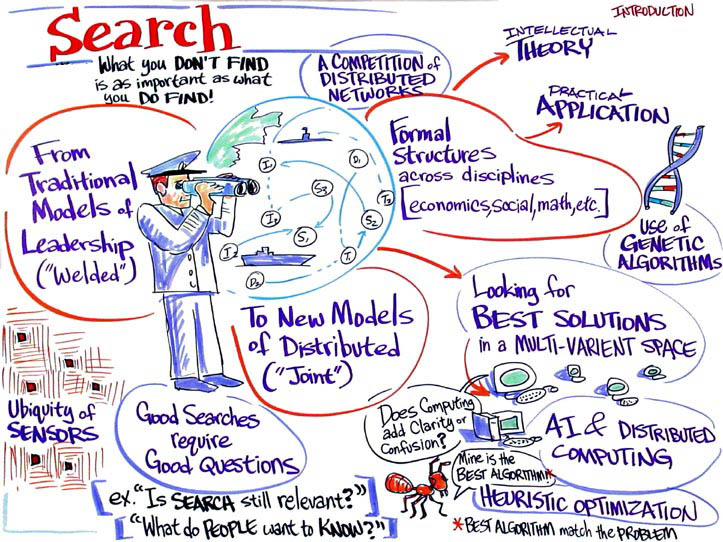 INTRODUCTION
Search
What you DON'T FIND
is as important as what
you DO FIND!
A COMPETITION of
DISTRIBUTED
NETWORKS
INTELLECTUAL
THEORY
PRACTICAL
APPLICATION
From
Traditional
Models of
Leadership
("Welded")
Formal
Structures
across disciplines
[economics, social, math, etc.]
USE of
GENETIC
ALGORITHMS
To New Models
of Distributed
("Joint")
Looking for
BEST SOLUTIONS
in a MULTI-VARIENT SPACE
Ubiquity of
SENSORS
Good Searches
require
Good Questions
ex. "Is SEARCH still relevant?"
"What do PEOPLE want to KNOW?"
Does Computing
add Clarity or
Confusion?
Mine is the
BEST ALGORITHM!*
AI & DISTRIBUTED
COMPUTING
HEURISTIC OPTIMIZATION
*BEST ALGORITHM match the PROBLEM